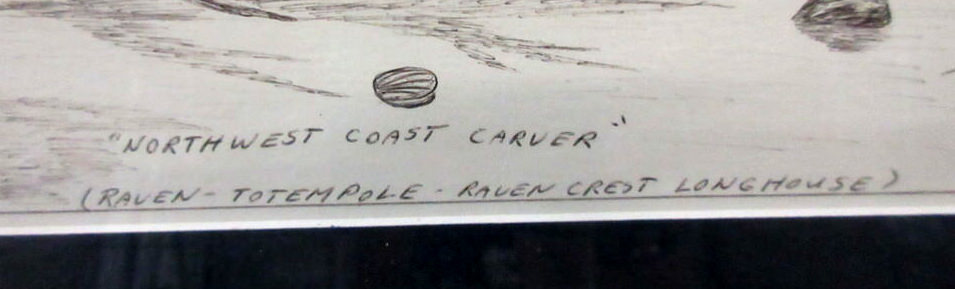 "NORTHWEST COAST CARVER"
(RAVEN - TOTEMPOLE - RAVEN CREST LONGHOUSE)